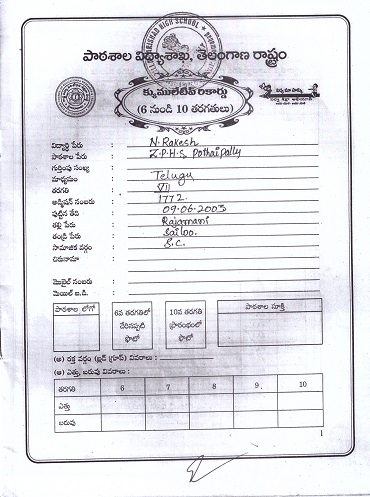 పాఠశాల విద్యాశాఖ, తెలంగాణ రాష్ట్రం
క్యుములేటివ్ రికార్డు
(6 నుండి 10 తరగతులు)
విద్యార్థి పేరు : N. Rakesh
పాఠశాల పేరు : Z.P.H.S Pothaipally
గుర్తింపు సంఖ్య :
మాధ్యమం : Telugu
తరగతి : VII
అడ్మిషన్ నంబరు : 1772.
పుట్టిన తేది : 09-06-2003
తల్లి పేరు : Rajamani
తండ్రి పేరు : Sailoo.
సామాజిక వర్గం : S.C.
చిరునామా :
మొబైల్ నంబరు :
మెయిల్ ఐ.డి. :
పాఠశాల లోగో
6వ తరగతిలో చేరినప్పటి ఫొటో
10వ తరగతి ప్రారంభంలో ఫొటో
పాఠశాల సూక్తి
(అ) రక్త వర్గం (బ్లడ్ గ్రూప్) వివరాలు :
(ఆ) ఎత్తు, బరువు వివరాలు :
తరగతి 6 7 8 9 10
ఎత్తు
బరువు
1